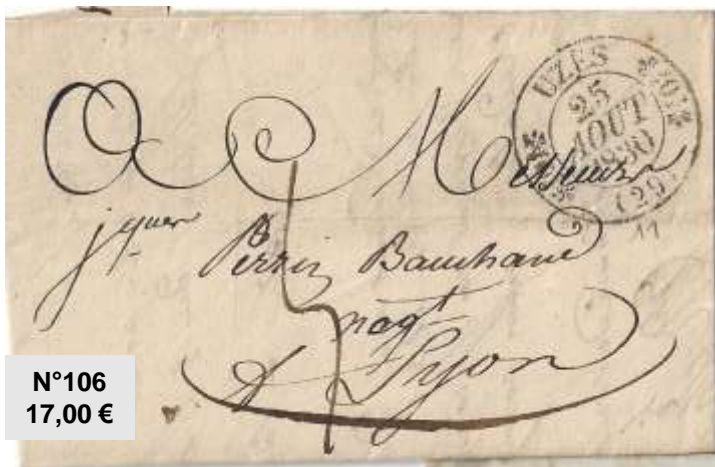 UZÈS
25
AOUT
1830
(29)
A Messieurs
jques Perrin Bauchand
negt
A Lyon
11
N°106
17,00 €